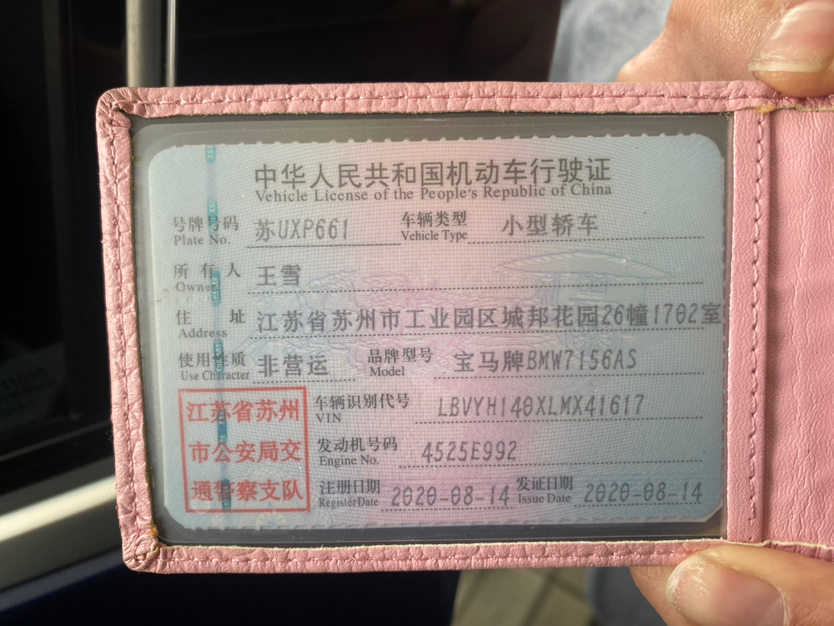 中华人民共和国机动车行驶证
Vehicle License of the People's Republic of China
号牌号码 苏UXP661 车辆类型 小型轿车
Plate No. Vehicle Type
所有人 王雪
Owner
住址 江苏省苏州市工业园区城邦花园26幢1702室
Address
使用性质 非营运 品牌型号 宝马牌BMW7156AS
Use Character Model
江苏省苏州 车辆识别代号 LBVYH140XLMX41617
VIN
市公安局交 发动机号码 4525E992
Engine No.
通警察支队 注册日期 2020-08-14 发证日期 2020-08-14
Register Date Issue Date